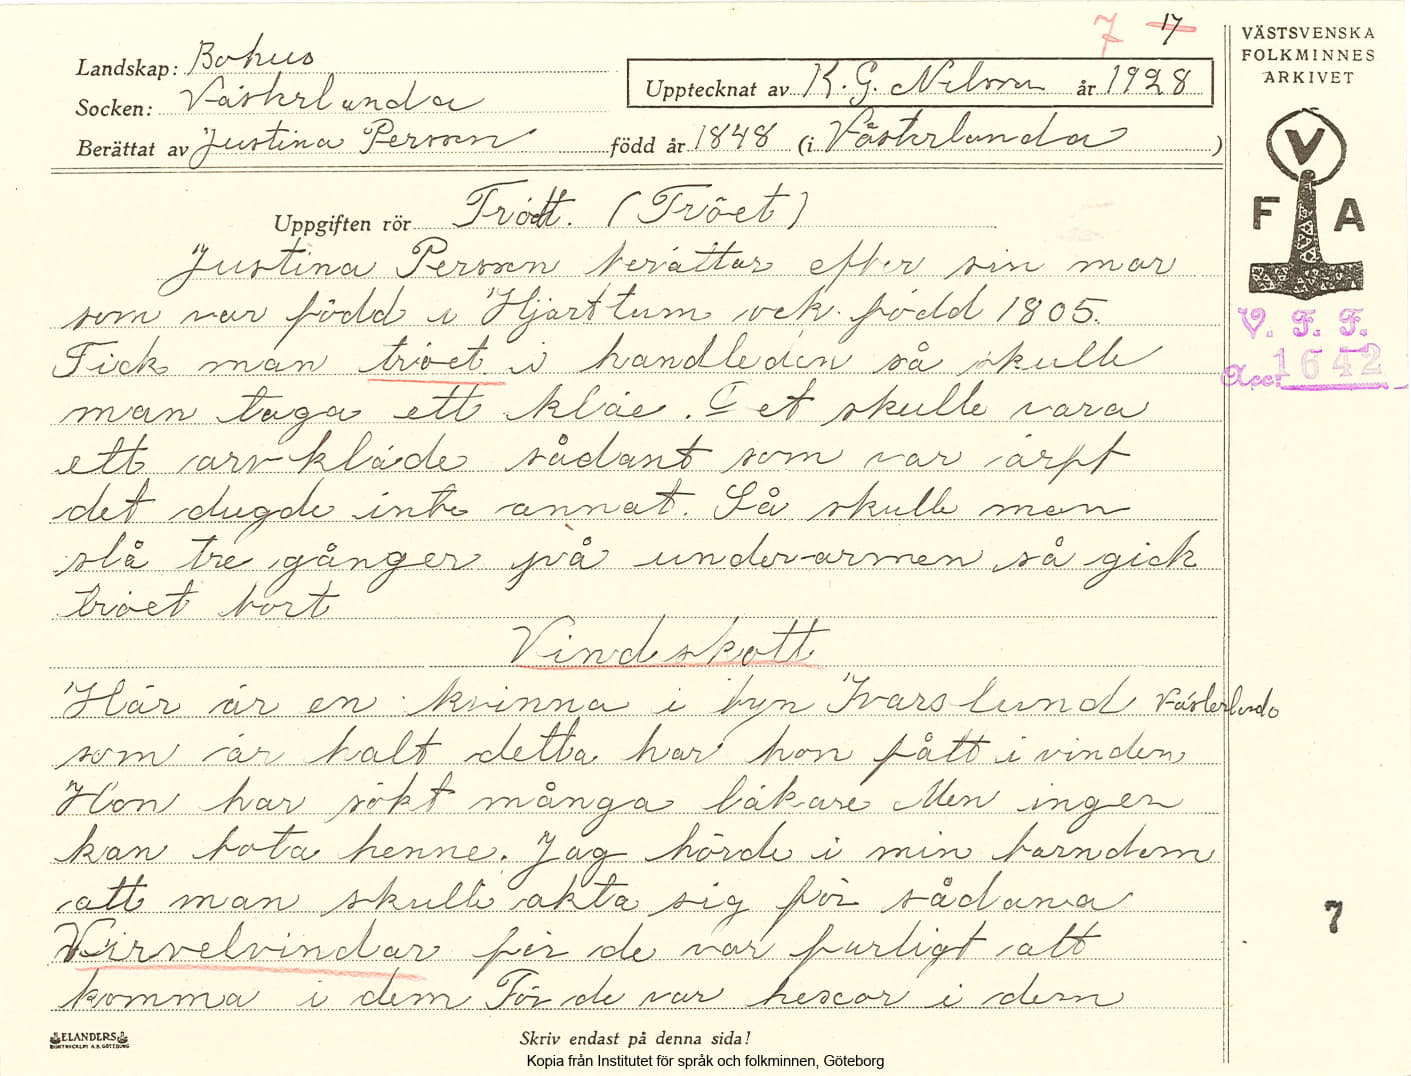 7 17
VÄSTSVENSKA
FOLKMINNES
ARKIVET
Landskap: Bohus
Upptecknat av K. G. Nilson år 1928
Socken: Västerlanda
Berättat av Justina Persson född år 1848 (i Västerlanda)
V
F A
Uppgiften rör Trödt. (Tröet)
Justina Persson berättar efter sin mor
som var född i Hjärttum och född 1805.
V. F. F.
Acc: 1642
Fick man tröet i handleden så skulle
man taga ett kläe. Det skulle vara
ett arv-kläde sådant som var ärft
det dugde inte annat. Så skulle men
slå tre gånger på under-armen så gick
tröet bort
Vindskott
Här är en kvinna i byn Ivarslund Västerlanda
som är halt detta har hon fått i vinden
Hon har sökt många läkare Men ingen
kan bota henne. Jag hörde i min barndom
att man skulle akta sig för sådana
7
Virvelvindar för de var farligt att
komma i dem För de var hexor i dem
ELANDERS
BOKTRYCKERI A.B. GÖTEBORG
Skriv endast på denna sida!
Kopia från Institutet för språk och folkminnen, Göteborg